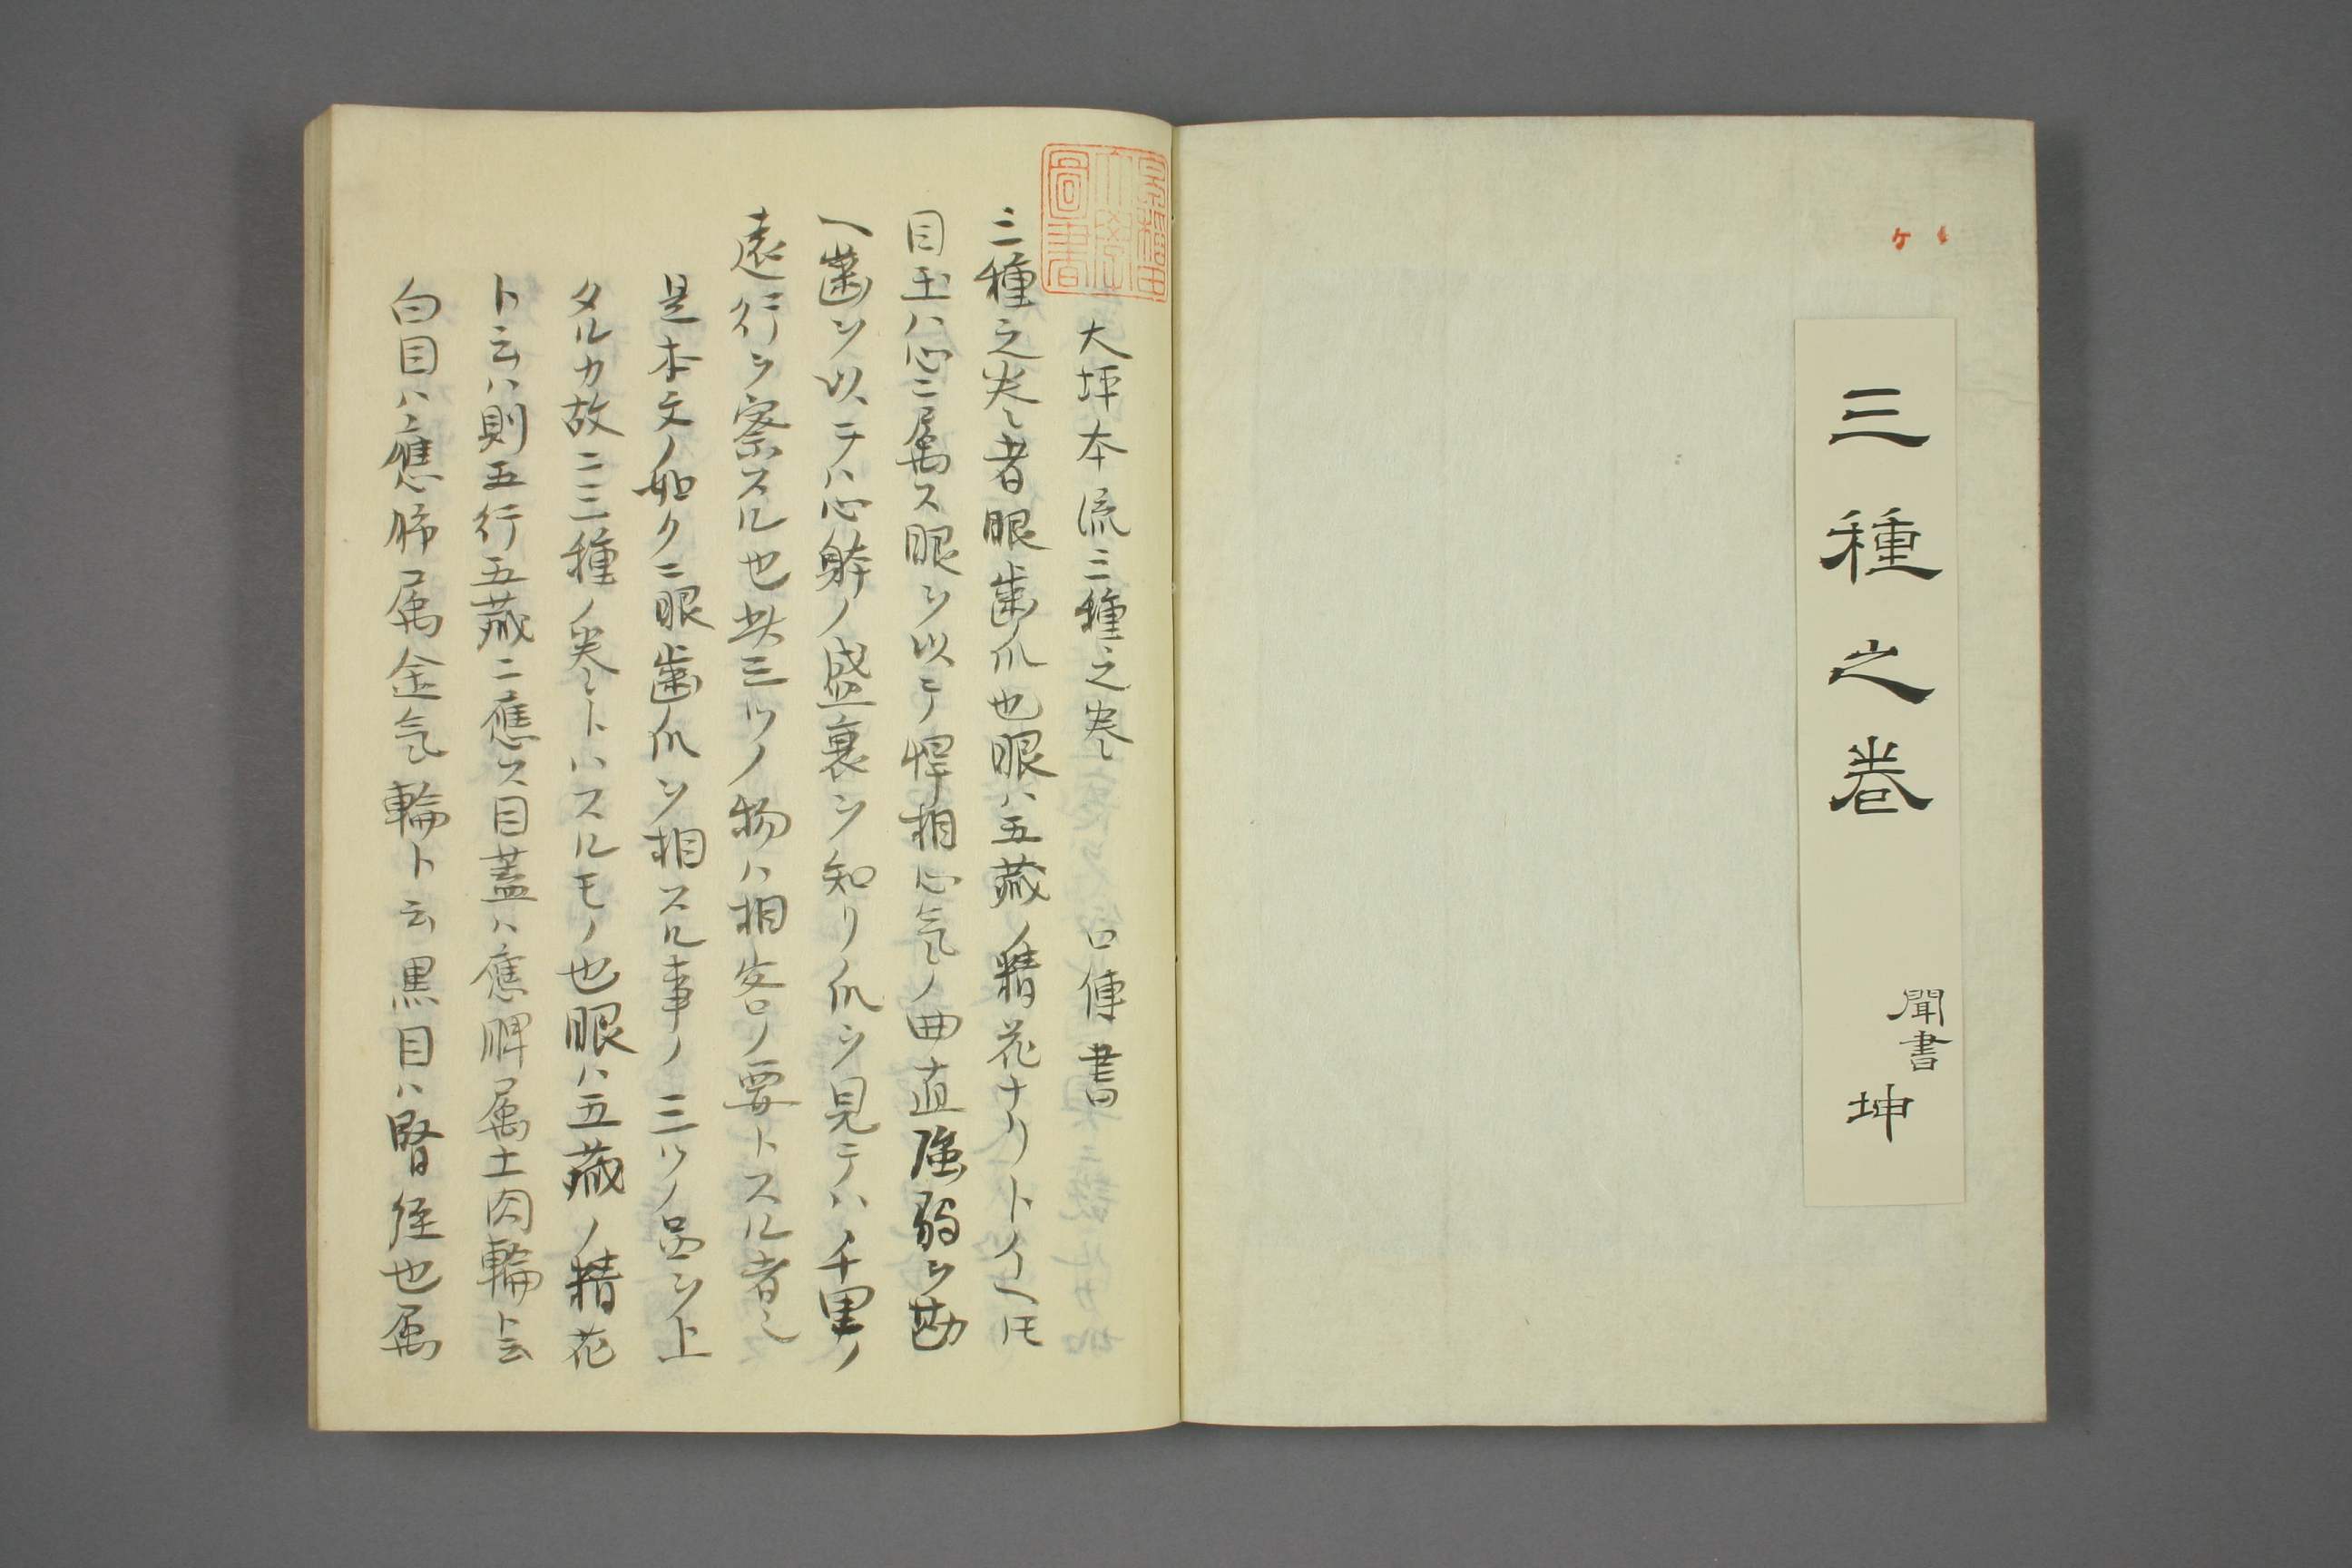 三種之巻
聞書
坤
早稲田
大學
圖書
大坪本流三種之巻 口傳書
三種之巻ト者眼歯爪也眼ハ五藏ノ精花ナリトイヘ𪜈
目玉ハ心ニ属ス眼ヲ以テ悍相心気ノ曲直強弱ヲ勘
ヘ歯ヲ以テハ心躰ノ盛衰ヲ知リ爪ヲ見テハ千里ノ
遠行ヲ察スル也此三ツノ物ハ相ノ要トスル者也
是本文ノ如クニ眼歯爪ヲ相スル事ノ三ツノ品ヲ上
タルカ故ニ三種ノ巻トハスルモノ也眼ハ五藏ノ精花
ト云ハ則五行五藏ニ應ス目蓋ハ應脾属土肉輪ト云
白目ハ應肺属金気輪ト云黒目ハ腎経也属